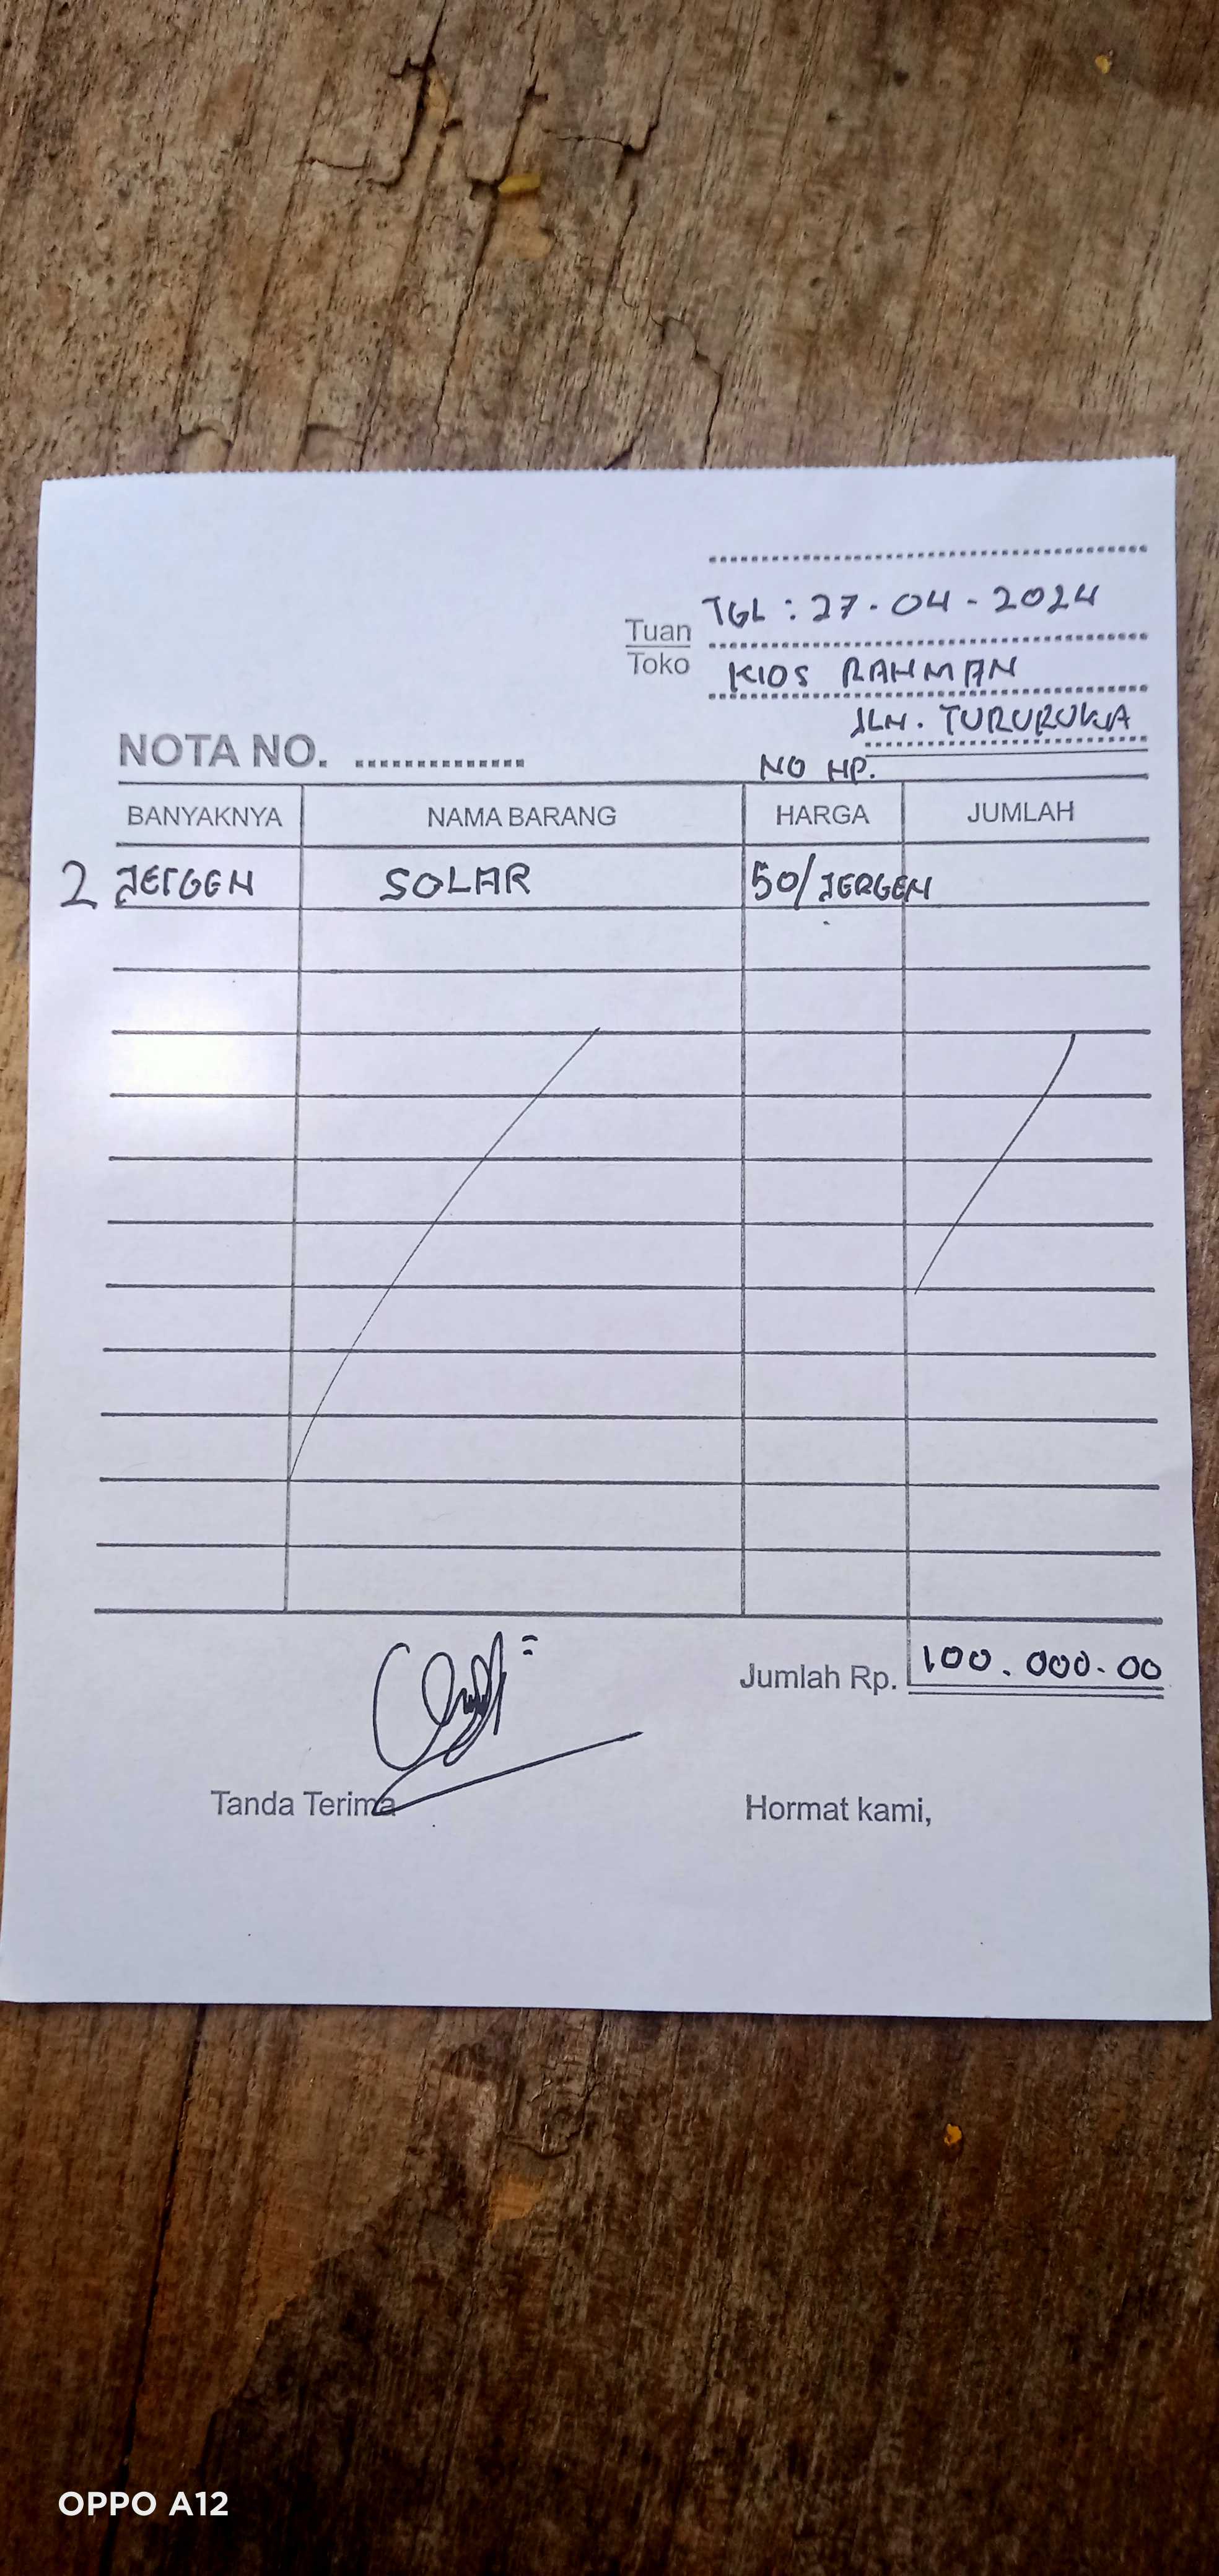 TGL : 27-04-2024
Tuan
Toko
KIOS RAHMAN
JLN. TURURUKA
NOTA NO. ...............
NO HP.
BANYAKNYA NAMA BARANG HARGA JUMLAH
2 JERGEN SOLAR 50/JERGEN
Jumlah Rp. 100.000.00
Tanda Terima Hormat kami,
OPPO A12